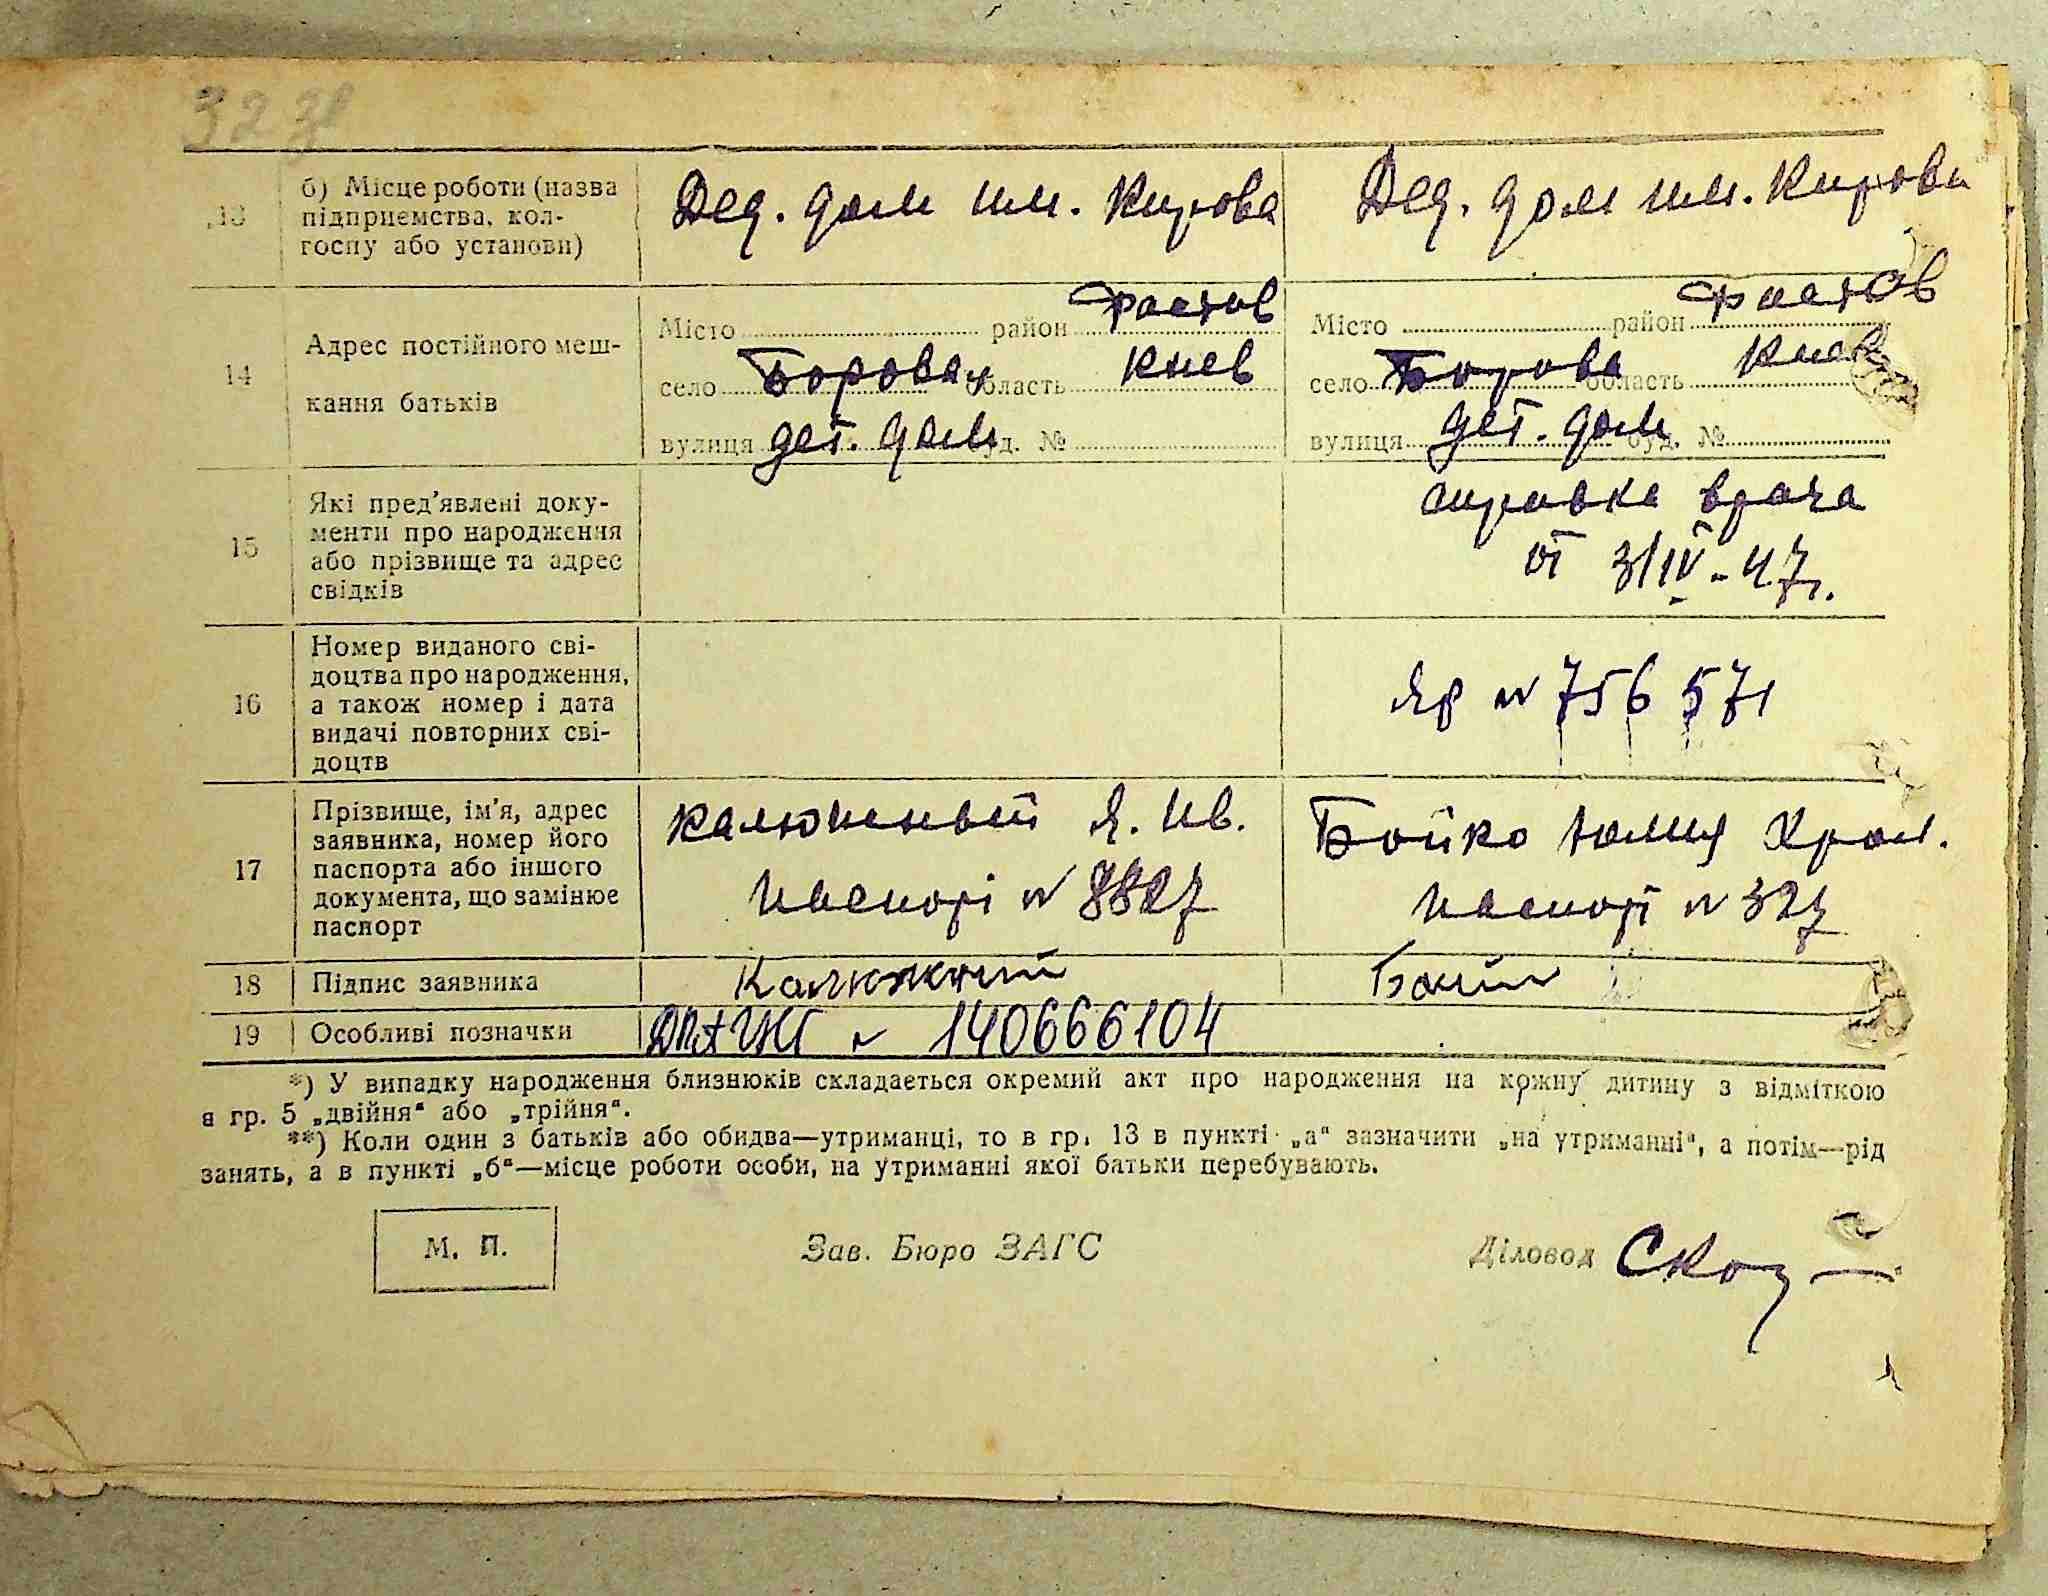 32 зв
13 б) Місце роботи (назва підприємства, кол- госпу або установи) Дед. дом им. Кирова Дед. дом им. Кирова
14 Адрес постійного меш- кання батьків
Місто район Фастов Місто район Фастов
село Боровая область Киев село Борова область Киев
вулиця дет. дом буд. № вулиця дет. дом буд. №
15 Які пред'явлені доку- менти про народження або прізвище та адрес свідків
справка врача
от 3/IV-47г.
16 Номер виданого сві- доцтва про народження, а також номер і дата видачі повторних сві- доцтв
яр N 756571
17 Прізвище, ім'я, адрес заявника, номер його паспорта або іншого документа, що замінює паспорт
Калюжный Я. Ив. Бойко Юлия Хром.
паспорт N 8827 паспорт N 327
18 Підпис заявника Калюжний Бойко
19 Особливі позначки 140666104
*) У випадку народження близнюків складається окремий акт про народження на кожну дитину з відміткою
в гр. 5 „двійня“ або „трійня“.
**) Коли один з батьків або обидва—утриманці, то в гр. 13 в пункті „а“ зазначити „на утриманні“, а потім—рід
занять, а в пункті „б“—місце роботи особи, на утриманні якої батьки перебувають.
М. П. Зав. Бюро ЗАГС Діловод